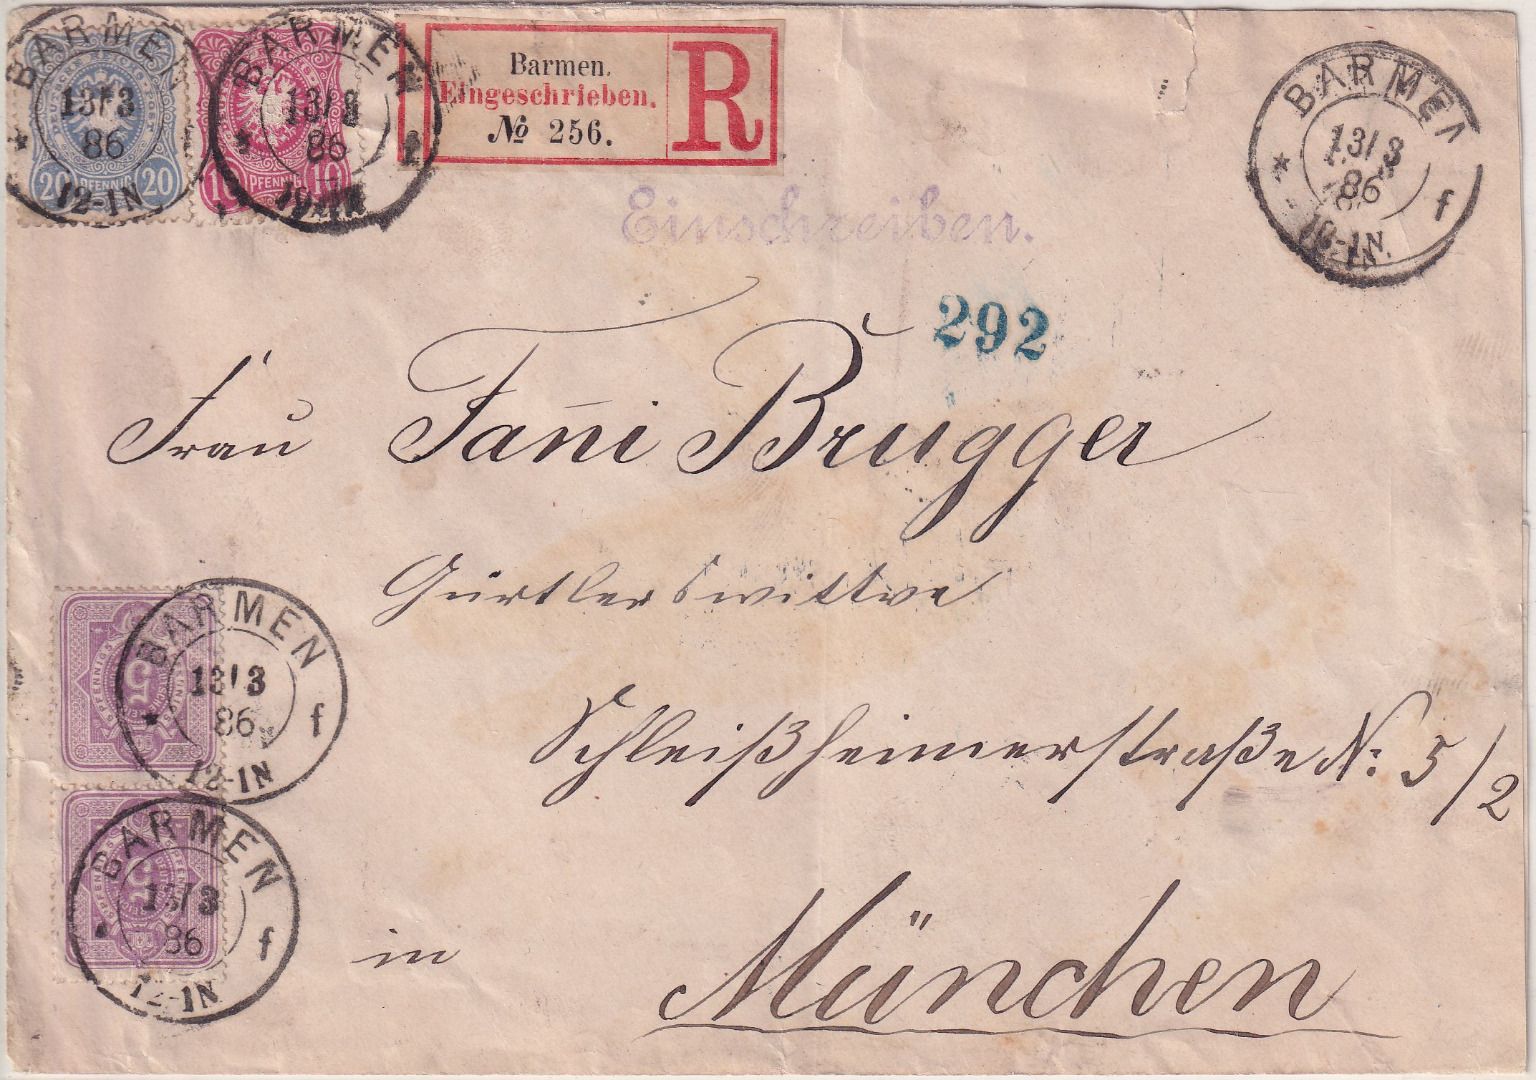 BARMEN
13/3
86
12-1N
DEUTSCHE REICHS-POST
20 PFENNIG 20
BARMEN
13/3
86
10 PFENNIG 10
Barmen.
Eingeschrieben.
№ 256.
R
BARMEN
13/3
86
f
Einschreiben.
292
Frau Fañi Brugger
Gürtlerswittwe
BARMEN
13/3
86
f
12-1N
5 PFENNIG 5
Schleißheimerstraße N: 5/2
BARMEN
13/3
86
f
12-1N
5 PFENNIG 5
in München